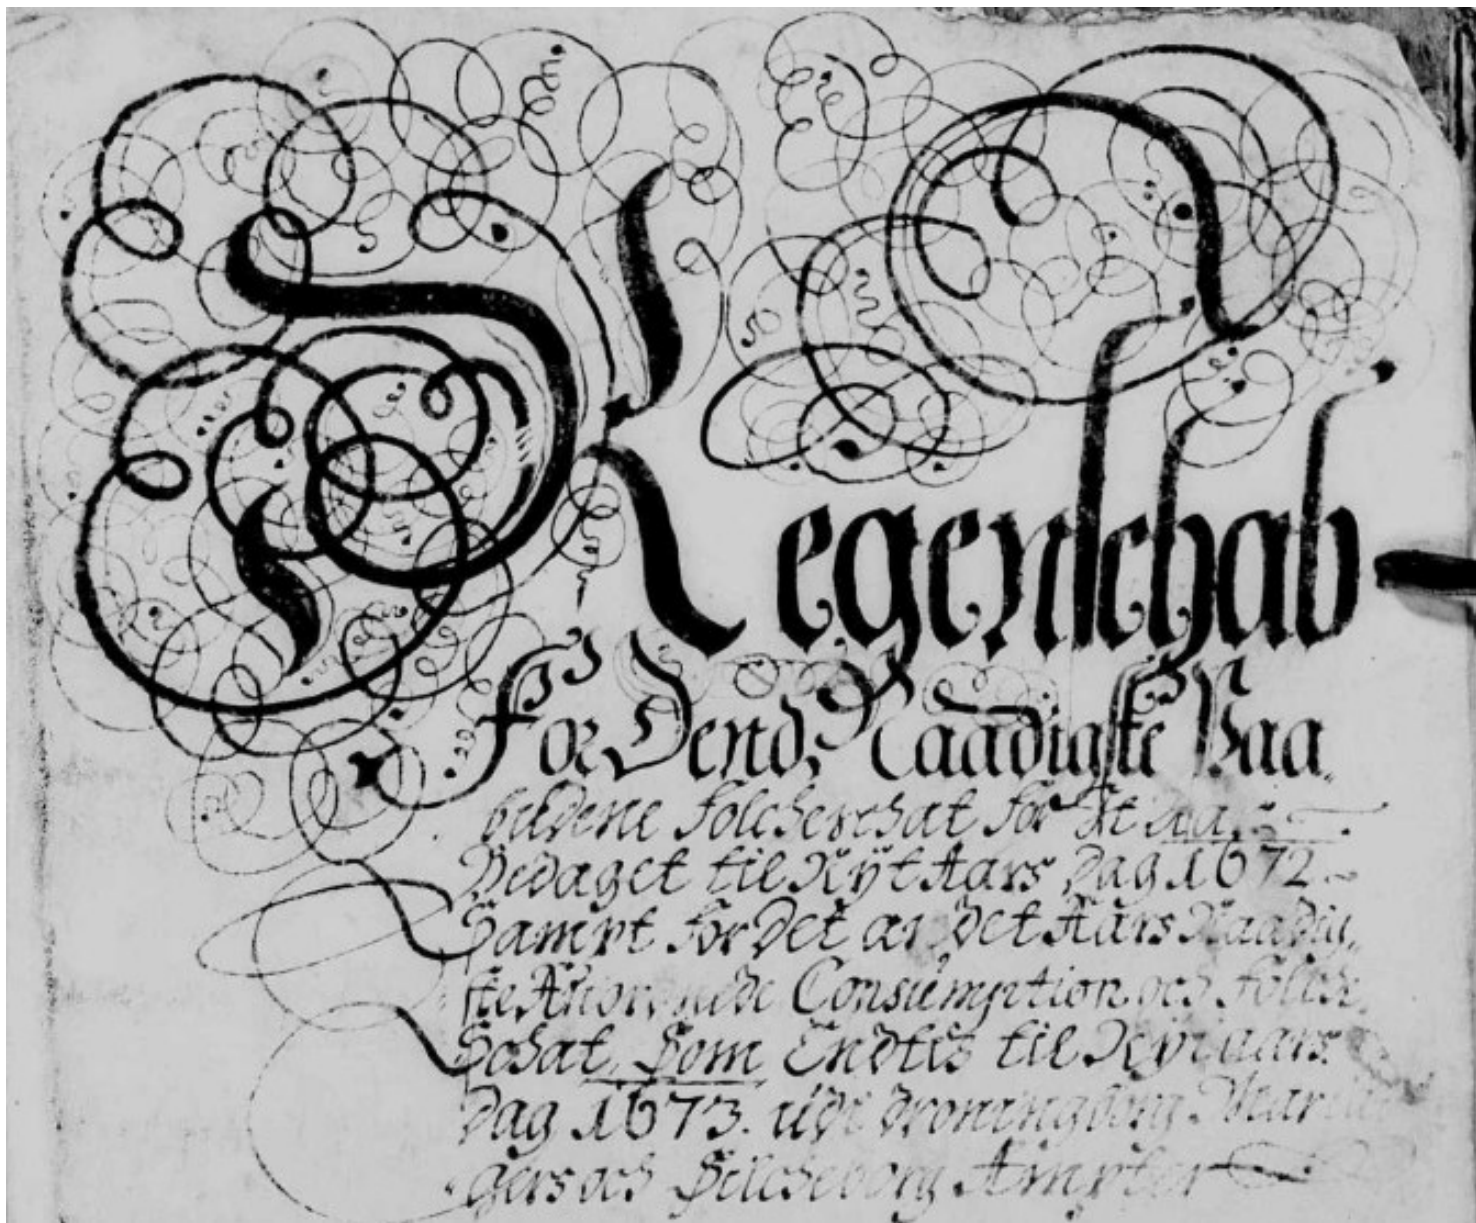 Regenschab
For Dend Naadigste Paa
budene Folcheschat for Et aar
Bedaget til Nÿt Aars Dag 1672
Sampt for Det andet Aars Naadig
ste Anordnede Consumption och Folche
Schat, Som Endtis til Nÿt aars
Dag 1673. udi Droningborg Mariia
gers och Silcheborg Ampter